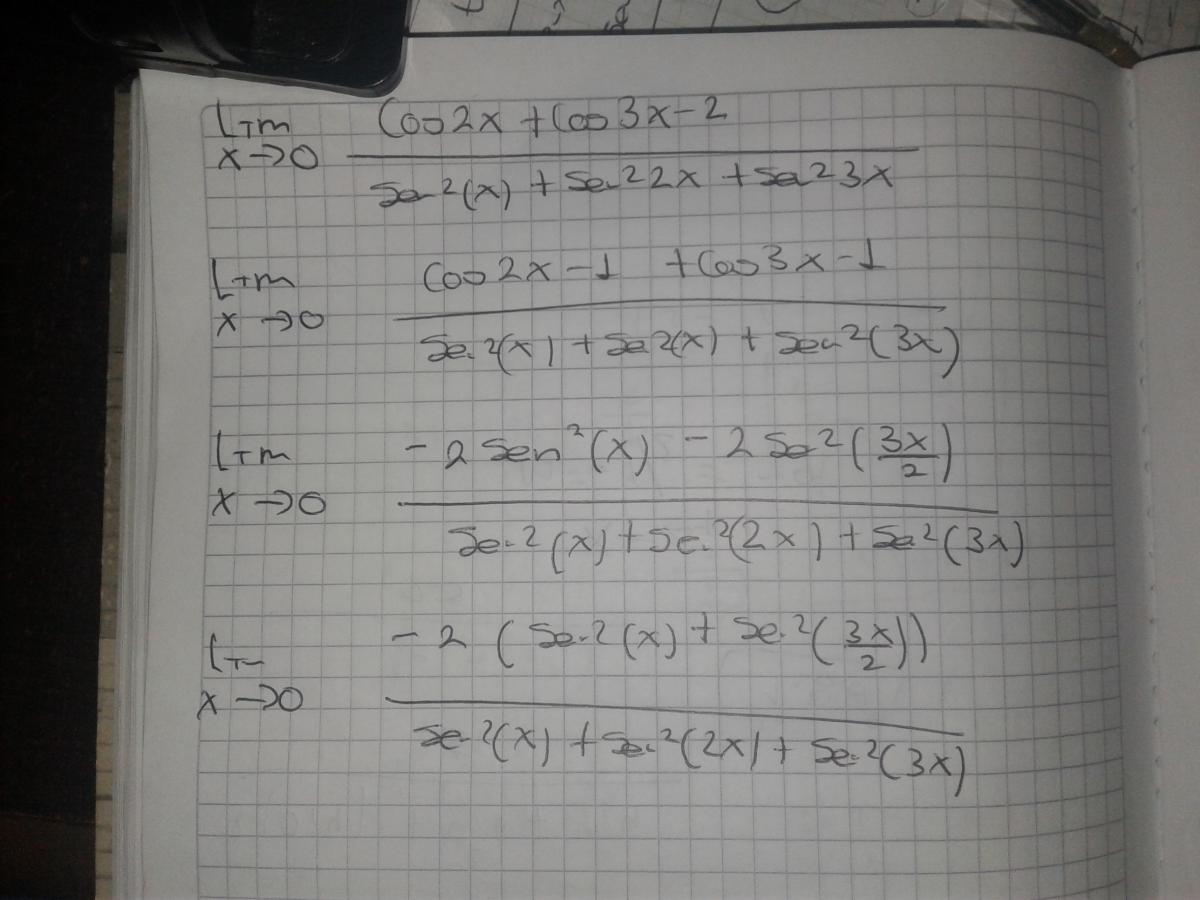 Lim Cos 2x + Cos 3x - 2
x → 0 Sen²(x) + Sen² 2x + Sen² 3x
Lim Cos 2x - 1 + Cos 3x - 1
x → 0 Sen²(x) + Sen²(x) + Sen²(3x)
Lim - 2 Sen²(x) - 2 Sen²(3x/2)
x → 0 Sen²(x) + Sen²(2x) + Sen²(3x)
Lim - 2 (Sen²(x) + Sen²(3x/2))
x → 0 Sen²(x) + Sen²(2x) + Sen²(3x)